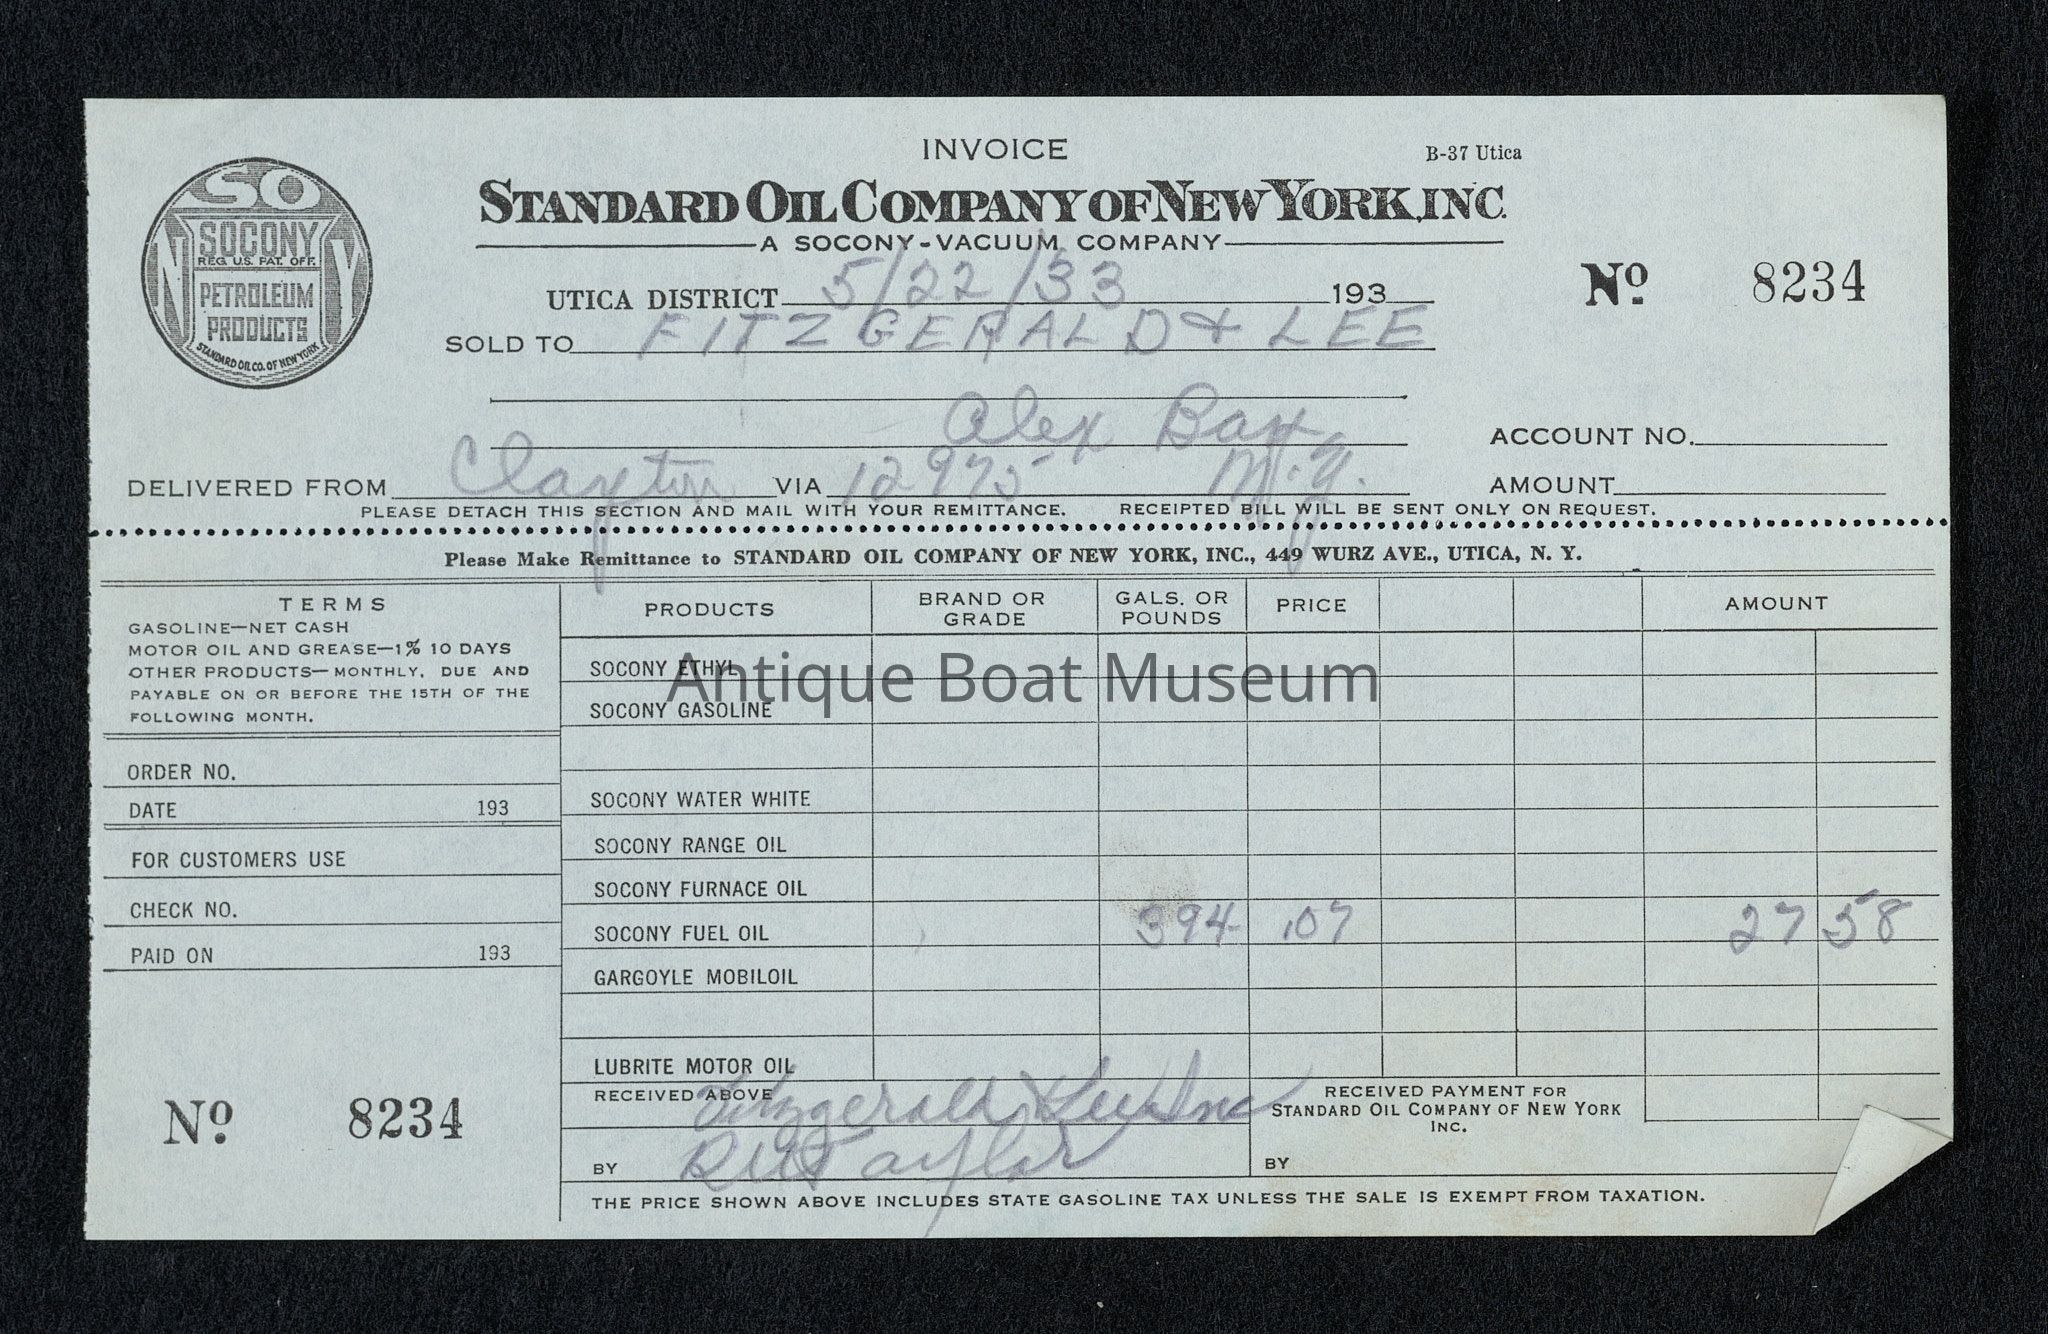 INVOICE
B-37 Utica
STANDARD OIL COMPANY OF NEW YORK, INC.
A SOCONY-VACUUM COMPANY
SO
NY
SOCONY
REG. U.S. PAT. OFF.
PETROLEUM
PRODUCTS
STANDARD OIL CO. OF NEW YORK
UTICA DISTRICT 5/22/33 193
No 8234
SOLD TO FITZGERALD & LEE
Alex Bay
ACCOUNT NO.
DELIVERED FROM Clayton VIA 12975 N.Y.
AMOUNT
PLEASE DETACH THIS SECTION AND MAIL WITH YOUR REMITTANCE. RECEIPTED BILL WILL BE SENT ONLY ON REQUEST.
Please Make Remittance to STANDARD OIL COMPANY OF NEW YORK, INC., 449 WURZ AVE., UTICA, N. Y.
TERMS
GASOLINE—NET CASH
MOTOR OIL AND GREASE—1% 10 DAYS
OTHER PRODUCTS—MONTHLY, DUE AND
PAYABLE ON OR BEFORE THE 15TH OF THE
FOLLOWING MONTH.
ORDER NO.
DATE 193
FOR CUSTOMERS USE
CHECK NO.
PAID ON 193
No 8234
PRODUCTS BRAND OR GRADE GALS. OR POUNDS PRICE AMOUNT
SOCONY ETHYL
Antique Boat Museum
SOCONY GASOLINE
SOCONY WATER WHITE
SOCONY RANGE OIL
SOCONY FURNACE OIL
SOCONY FUEL OIL 394- .07 27 58
GARGOYLE MOBILOIL
LUBRITE MOTOR OIL
RECEIVED ABOVE Fitzgerald & Lee Inc
BY Taylor
RECEIVED PAYMENT FOR
STANDARD OIL COMPANY OF NEW YORK
INC.
BY
THE PRICE SHOWN ABOVE INCLUDES STATE GASOLINE TAX UNLESS THE SALE IS EXEMPT FROM TAXATION.